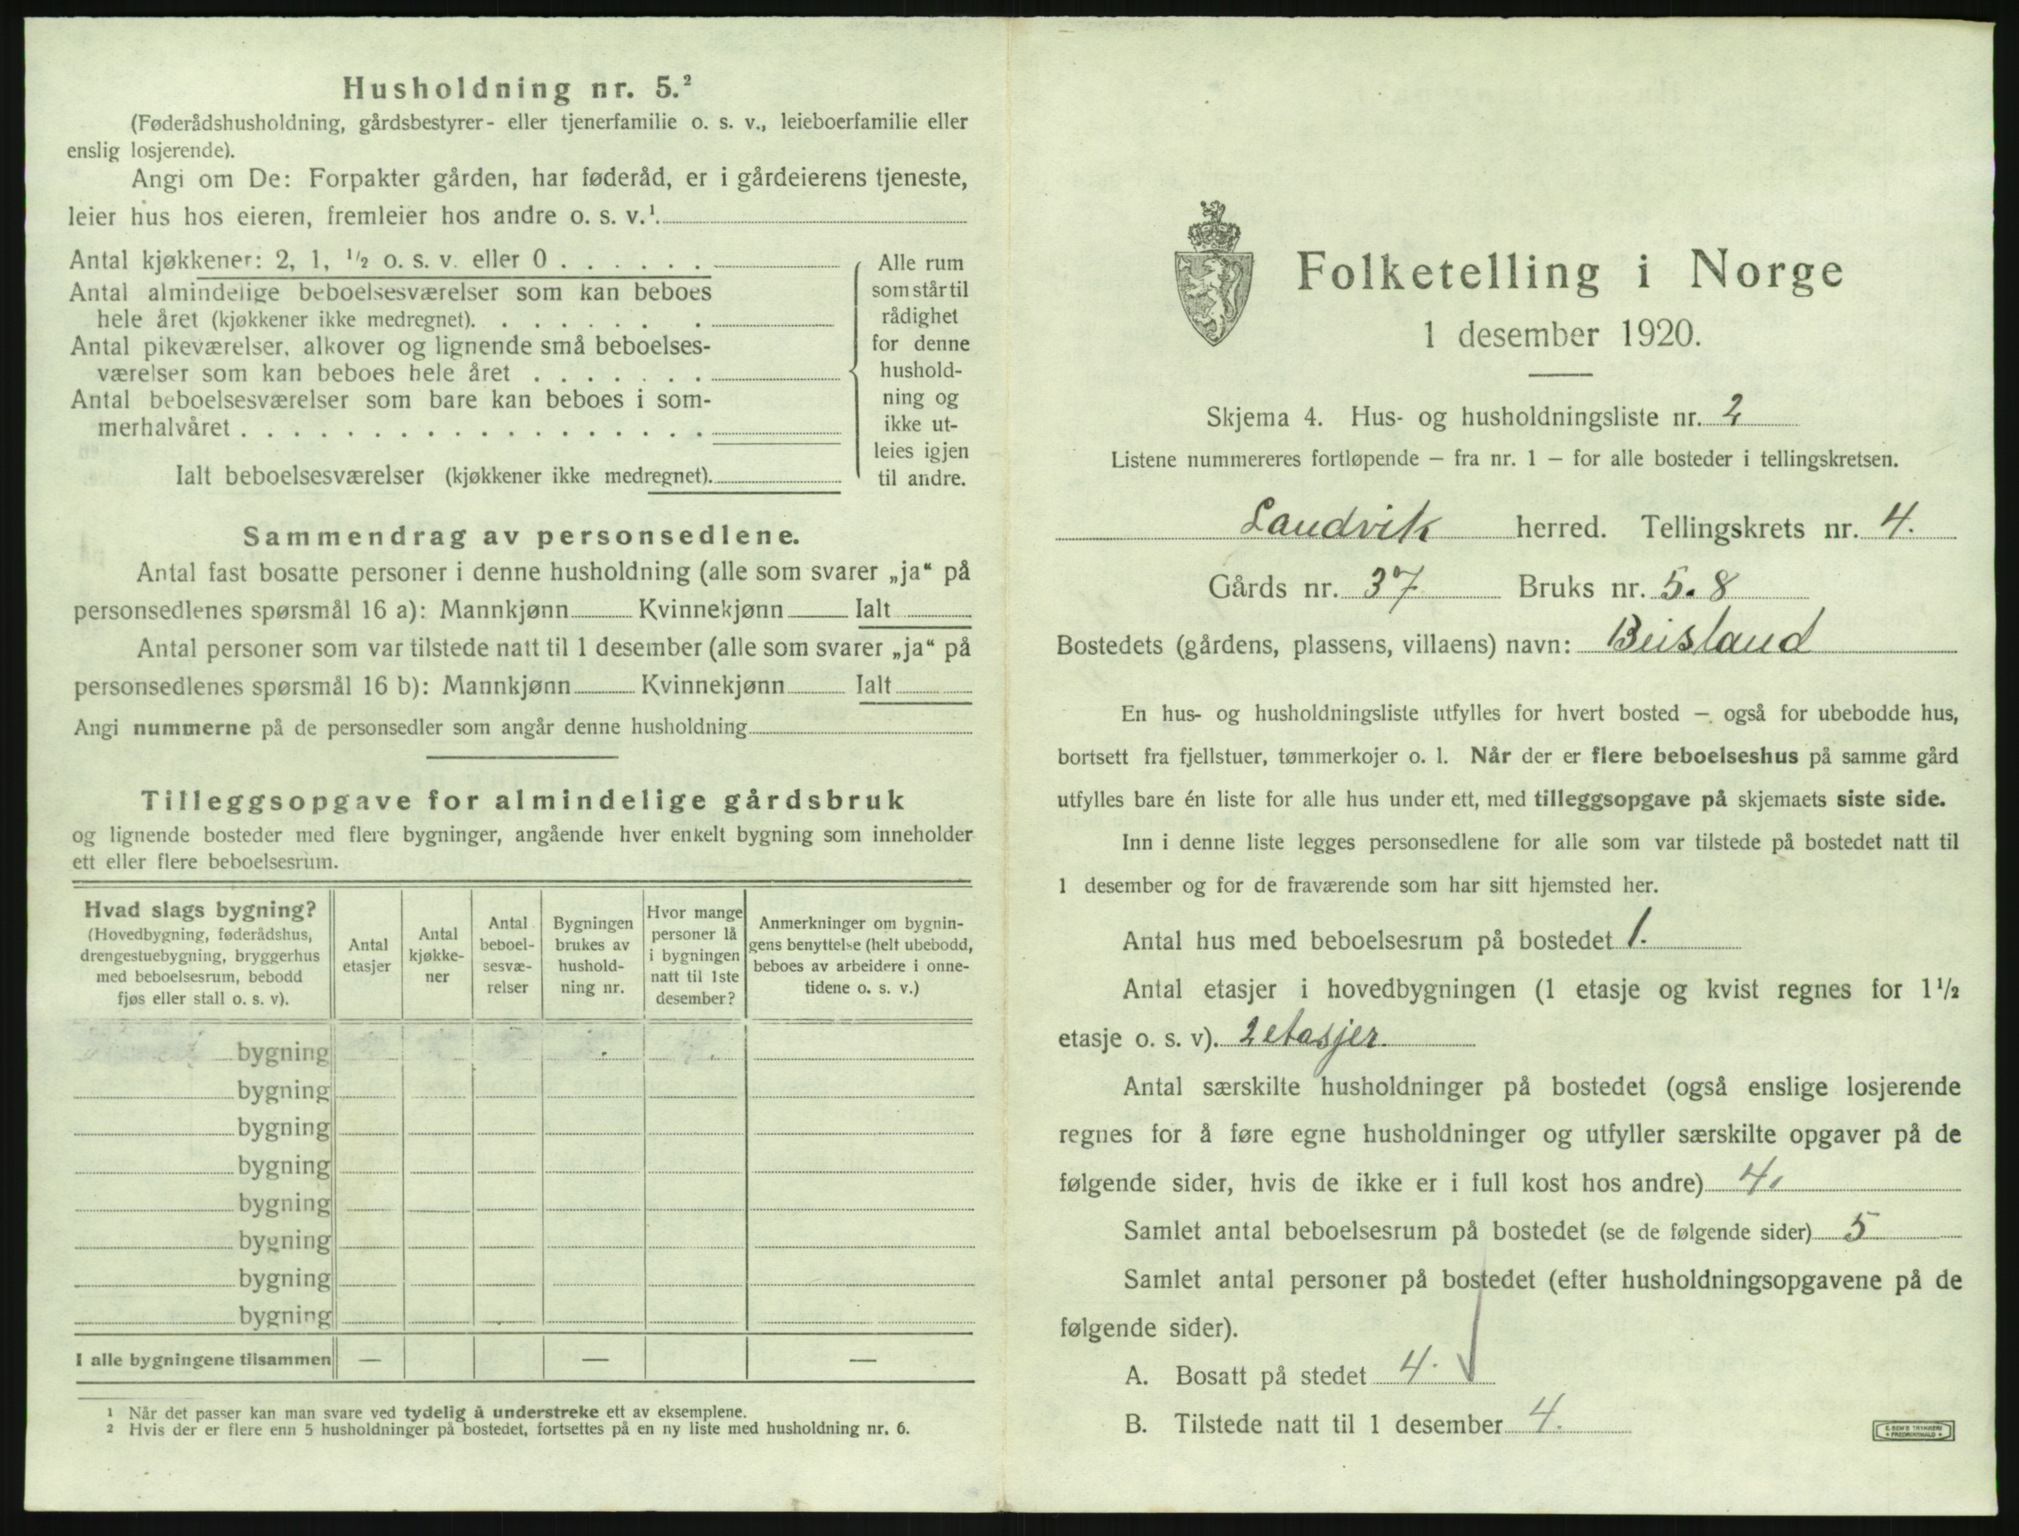 Husholdning nr. 5.²
(Føderådshusholdning, gårdsbestyrer- eller tjenerfamilie o. s. v., leieboerfamilie eller
enslig losjerende).
Angi om De: Forpakter gården, har føderåd, er i gårdeierens tjeneste,
leier hus hos eieren, fremleier hos andre o. s. v.¹
Antal kjøkkener: 2, 1, ½ o. s. v. eller 0 . . . . . .
Antal almindelige beboelsesværelser som kan beboes
hele året (kjøkkener ikke medregnet). . . . . . . .
Antal pikeværelser, alkover og lignende små beboelses-
værelser som kan beboes hele året . . . . . . .
Antal beboelsesværelser som bare kan beboes i som-
merhalvåret . . . . . . . . . . . . . . . . . .
Ialt beboelsesværelser (kjøkkener ikke medregnet).
Alle rum
som står til
rådighet
for denne
hushold-
ning og
ikke ut-
leies igjen
til andre.
Sammendrag av personsedlene.
Antal fast bosatte personer i denne husholdning (alle som svarer „ja“ på
personsedlenes spørsmål 16 a): Mannkjønn Kvinnekjønn Ialt
Antal personer som var tilstede natt til 1 desember (alle som svarer „ja“ på
personsedlenes spørsmål 16 b): Mannkjønn Kvinnekjønn Ialt
Angi nummerne på de personsedler som angår denne husholdning
Tilleggsopgave for almindelige gårdsbruk
og lignende bosteder med flere bygninger, angående hver enkelt bygning som inneholder
ett eller flere beboelsesrum.
Hvad slags bygning?
(Hovedbygning, føderådshus,
drengestuebygning, bryggerhus
med beboelsesrum, bebodd
fjøs eller stall o. s. v).
Antal
etasjer
Antal
kjøkke-
ner
Antal
beboel-
sesvæ-
relser
Bygningen
brukes av
hushold-
ning nr.
Hvor mange
personer lå
i bygningen
natt til 1ste
desember?
Anmerkninger om bygnin-
gens benyttelse (helt ubebodd,
beboes av arbeidere i onne-
tidene o. s. v.)
bygning
bygning
bygning
bygning
bygning
bygning
bygning
bygning
I alle bygningene tilsammen — — —
¹ Når det passer kan man svare ved tydelig å understreke ett av eksemplene.
² Hvis der er flere enn 5 husholdninger på bostedet, fortsettes på en ny liste med husholdning nr. 6.
Folketelling i Norge
1 desember 1920.
Skjema 4. Hus- og husholdningsliste nr. 2
Listene nummereres fortløpende — fra nr. 1 — for alle bosteder i tellingskretsen.
Landvik herred. Tellingskrets nr. 4.
Gårds nr. 37 Bruks nr. 5.8
Bostedets (gårdens, plassens, villaens) navn: Beisland
En hus- og husholdningsliste utfylles for hvert bosted — også for ubebodde hus,
bortsett fra fjellstuer, tømmerkojer o. l. Når der er flere beboelseshus på samme gård
utfylles bare én liste for alle hus under ett, med tilleggsopgave på skjemaets siste side.
Inn i denne liste legges personsedlene for alle som var tilstede på bostedet natt til
1 desember og for de fraværende som har sitt hjemsted her.
Antal hus med beboelsesrum på bostedet 1.
Antal etasjer i hovedbygningen (1 etasje og kvist regnes for 1½
etasje o. s. v). 2 etasjer.
Antal særskilte husholdninger på bostedet (også enslige losjerende
regnes for å føre egne husholdninger og utfyller særskilte opgaver på de
følgende sider, hvis de ikke er i full kost hos andre) 4.
Samlet antal beboelsesrum på bostedet (se de følgende sider) 5
Samlet antal personer på bostedet (efter husholdningsopgavene på de
følgende sider).
A. Bosatt på stedet 4.
B. Tilstede natt til 1 desember 4.